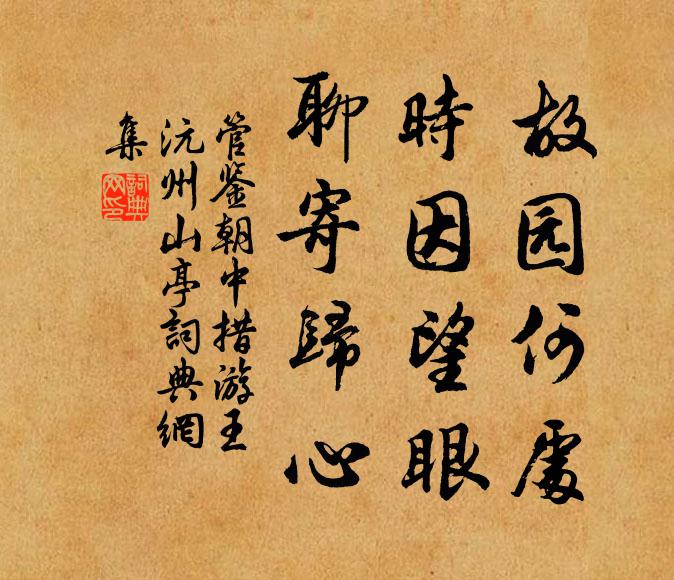 故园何處
時因望眼
聊寄歸心
管鉴朝中措游王
沅州山亭詞典網
集
詞典網印